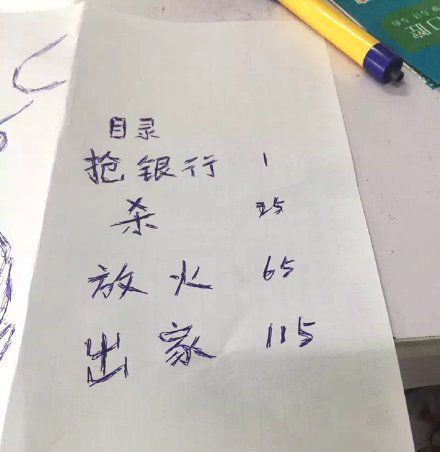 目录
抢银行 1
杀 25
放火 65
出家 115